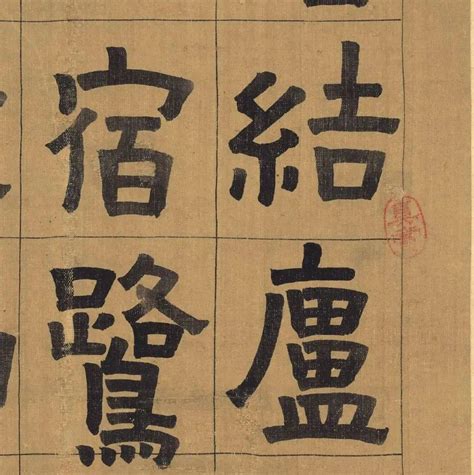 結廬
宿鷺